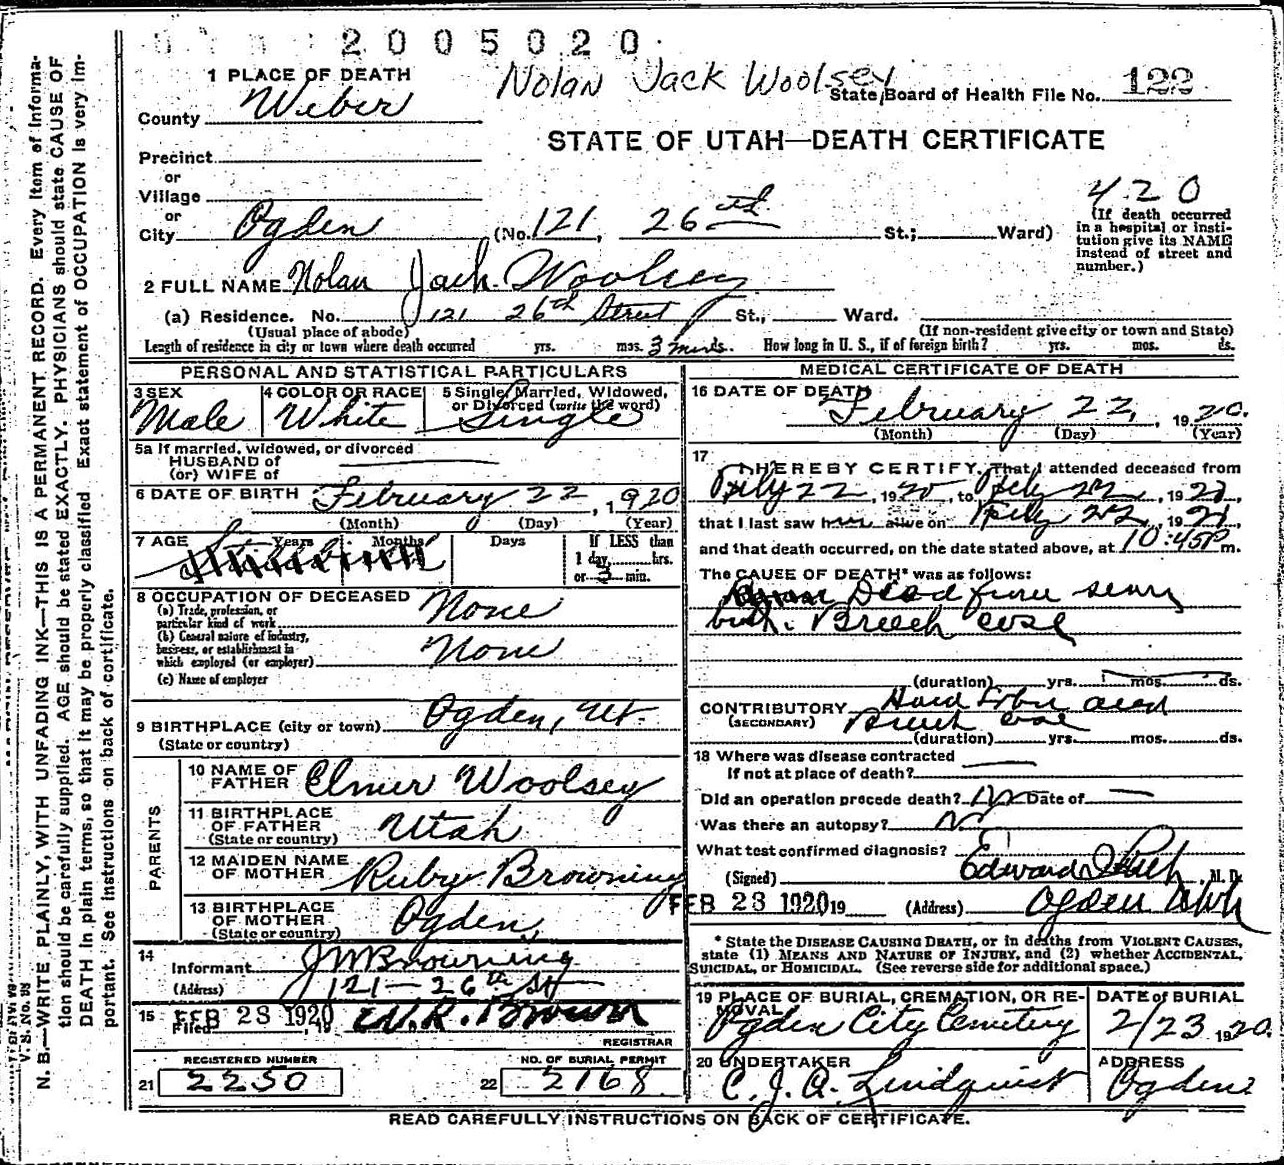 2005020
1 PLACE OF DEATH
Nolan Jack Woolsey
State Board of Health File No. 122
County Weber
STATE OF UTAH—DEATH CERTIFICATE
Precinct
or
Village
or
City Ogden (No. 121, 26th St.; Ward)
420
(If death occurred
in a hospital or insti-
tution give its NAME
instead of street and
number.)
2 FULL NAME Nolan Jack Woolsey
(a) Residence. No. 121 26th Street St., Ward.
(Usual place of abode)
(If non-resident give city or town and State)
Length of residence in city or town where death occurred yrs. mos. 3 mins. How long in U. S., if of foreign birth? yrs. mos. ds.
PERSONAL AND STATISTICAL PARTICULARS
3 SEX
Male
4 COLOR OR RACE
White
5 Single, Married, Widowed,
or Divorced (write the word)
Single
5a If married, widowed, or divorced
HUSBAND of
(or) WIFE of
6 DATE OF BIRTH February 22, 1920
(Month) (Day) (Year)
7 AGE Years Months Days
If LESS than
1 day, hrs.
or 3 min.
8 OCCUPATION OF DECEASED
(a) Trade, profession, or
particular kind of work None
(b) General nature of industry,
business, or establishment in
which employed (or employer) None
(c) Name of employer
9 BIRTHPLACE (city or town) Ogden, Ut.
(State or country)
PARENTS
10 NAME OF
FATHER Elmer Woolsey
11 BIRTHPLACE
OF FATHER Utah
(State or country)
12 MAIDEN NAME
OF MOTHER Ruby Browning
13 BIRTHPLACE
OF MOTHER Ogden,
(State or country)
14
Informant J M Browning
(Address) 121—26th St
15 Filed FEB 23 1920, 19 W. R. Brown
REGISTRAR
REGISTERED NUMBER
21 2250
NO. OF BURIAL PERMIT
22 2168
MEDICAL CERTIFICATE OF DEATH
16 DATE OF DEATH
February 22, 1920.
(Month) (Day) (Year)
17
I HEREBY CERTIFY, That I attended deceased from
22, 1920, to 22, 19
that I last saw h alive on 22, 19
and that death occurred, on the date stated above, at 10:45P m.
The CAUSE OF DEATH* was as follows:
Dead from
birth. Breech case
(duration) yrs. mos. ds.
CONTRIBUTORY Hard
(SECONDARY) Breech case
(duration) yrs. mos. ds.
18 Where was disease contracted
If not at place of death?
Did an operation precede death? No Date of
Was there an autopsy? No
What test confirmed diagnosis?
(Signed) Edward I. M. D.
FEB 23 1920 19 (Address) Ogden Utah
* State the DISEASE CAUSING DEATH, or in deaths from VIOLENT CAUSES,
state (1) MEANS AND NATURE OF INJURY, and (2) whether ACCIDENTAL,
SUICIDAL, or HOMICIDAL. (See reverse side for additional space.)
19 PLACE OF BURIAL, CREMATION, OR RE-
MOVAL
Ogden City Cemetery
DATE of BURIAL
2/23 1920.
20 UNDERTAKER
C. J. A. Lindquist
ADDRESS
Ogden
READ CAREFULLY INSTRUCTIONS ON BACK OF CERTIFICATE.
N. B.—WRITE PLAINLY, WITH UNFADING INK—THIS IS A PERMANENT RECORD. Every item of informa-
tion should be carefully supplied. AGE should be stated EXACTLY. PHYSICIANS should state CAUSE OF
DEATH in plain terms, so that it may be properly classified. Exact statement of OCCUPATION is very im-
portant. See instructions on back of certificate.